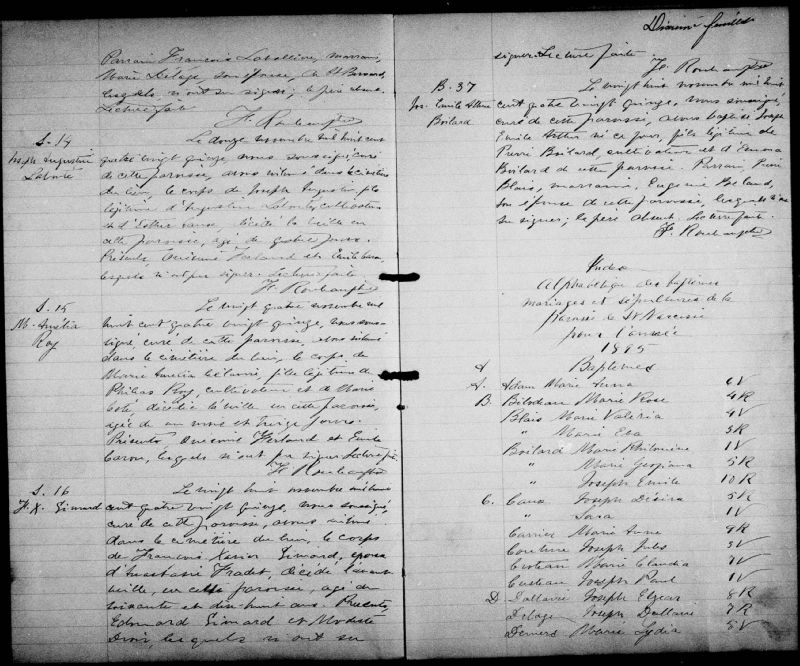 Parrain François Labollière, marraine,
Marie Delage, son épouse, de St Bernard,
lesquels n'ont su signer; le père absent.
Lecture faite
F. Rouleau ptre
S. 14
Joseph Augustin
Labonté
Le douze novembre mil huit cent
quatre vingt quinze, nous soussigné, curé
de cette paroisse, avons inhumé dans le cimetière
du lieu, le corps de Joseph Augustin, fils
légitime d'Augustin Labonté, cultivateur
et d'Esther, décédé la veille en
cette paroisse, agé de quatre jours.
Présents, Onésime Ferland et Emile Caron,
lesquels n'ont pu signer. Lecture faite.
S. 15
M. Amélia
Roy
Le vingt quatre novembre mil
huit cent quatre vingt quinze, nous sous-
signé, curé de cette paroisse, avons inhumé
dans le cimetière du lieu, le corps de
Marie Amelia, fille légitime de
Philias Roy, cultivateur et de Marie
Coté, décédée la veille en cette paroisse,
agée de un mois et treize jours.
Présents Onésime Ferland et Emile
Caron, lesquels n'ont pu signer. Lecture faite.
S. 16
F. X. Simard
Le vingt huit novembre mil huit
cent quatre vingt quinze, nous soussigné,
curé de cette paroisse, avons inhumé
dans le cimetière du lieu, le corps
de François Xavier Simard, époux
d'Anastasie Fradet, décédé l'avant
veille, en cette paroisse, agé de
soixante et dix huit ans. Présents,
Edouard Simard et Modeste
Drois, lesquels n'ont su
signer. Lecture faite.
B. 37
Jos. Emile Arthur
Boilard
Le vingt huit novembre mil huit
cent quatre vingt quinze, nous soussigné,
curé de cette paroisse, avons baptisé Joseph
Emile Arthur né ce jour, fils légitime de
Pierre Boilard, cultivateur et d'
Boilard de cette paroisse. Parrain, Pierre
Blais, marraine, Eugénie Beland,
son épouse de cette paroisse, lesquels n'ont
su signer; le père absent. Lecture faite.
Index
Alphabétique des baptêmes
mariages et sépultures de la
paroisse de St Narcisse
pour l'année
1895
A Baptêmes
A. Adam Marie Anna 6V
B. Bilodeau Marie Rose 4R
Blais Marie Valeria 4V
" Marie Eva 3R
Boilard Marie Philomène 1V
" Marie Georgiana 5R
" Joseph Emile 10R
C. Caux Joseph Désiré 5R
" Sara 1V
Carrier Marie Anne 9R
Couture Joseph Jules 3V
Custeau Marie Claudia 7V
Custeau Joseph Raoul 1V
D Dallaire Joseph Elzear 8R
Delage Joseph Dallaire 7R
Demers Marie Lydia 5V